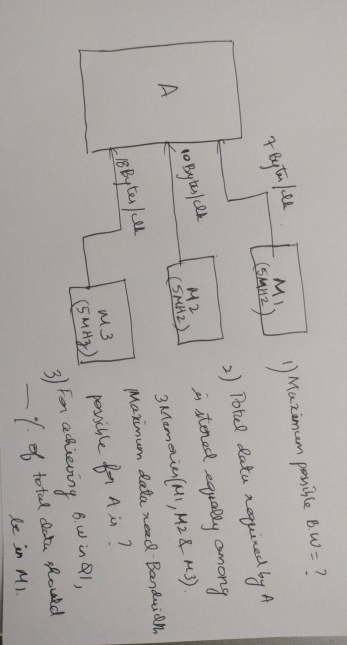 A
7 Bytes/clk.
10 Bytes/clk
18 Bytes/clk
M1
(5MHZ)
M2
(5MHZ)
M3
(5MHz)
1) Maximum possible B.W = ?
2) Total data required by A
is stored equally among
3 Memories (M1, M2 & M3).
Maximum data read Bandwidth
possible for A is ?
3) For achieving B.W in Q1,
— % of total data should
be in M1.